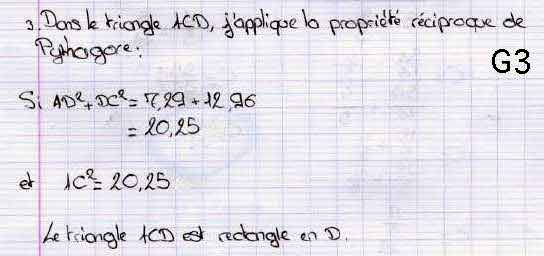 3. Dans le triangle ACD, j'applique la propriété réciproque de
Pythagore:
G3
Si AD²+DC² = 7,29 + 12,96
= 20,25
et AC² = 20,25
Le triangle ACD est rectangle en D.